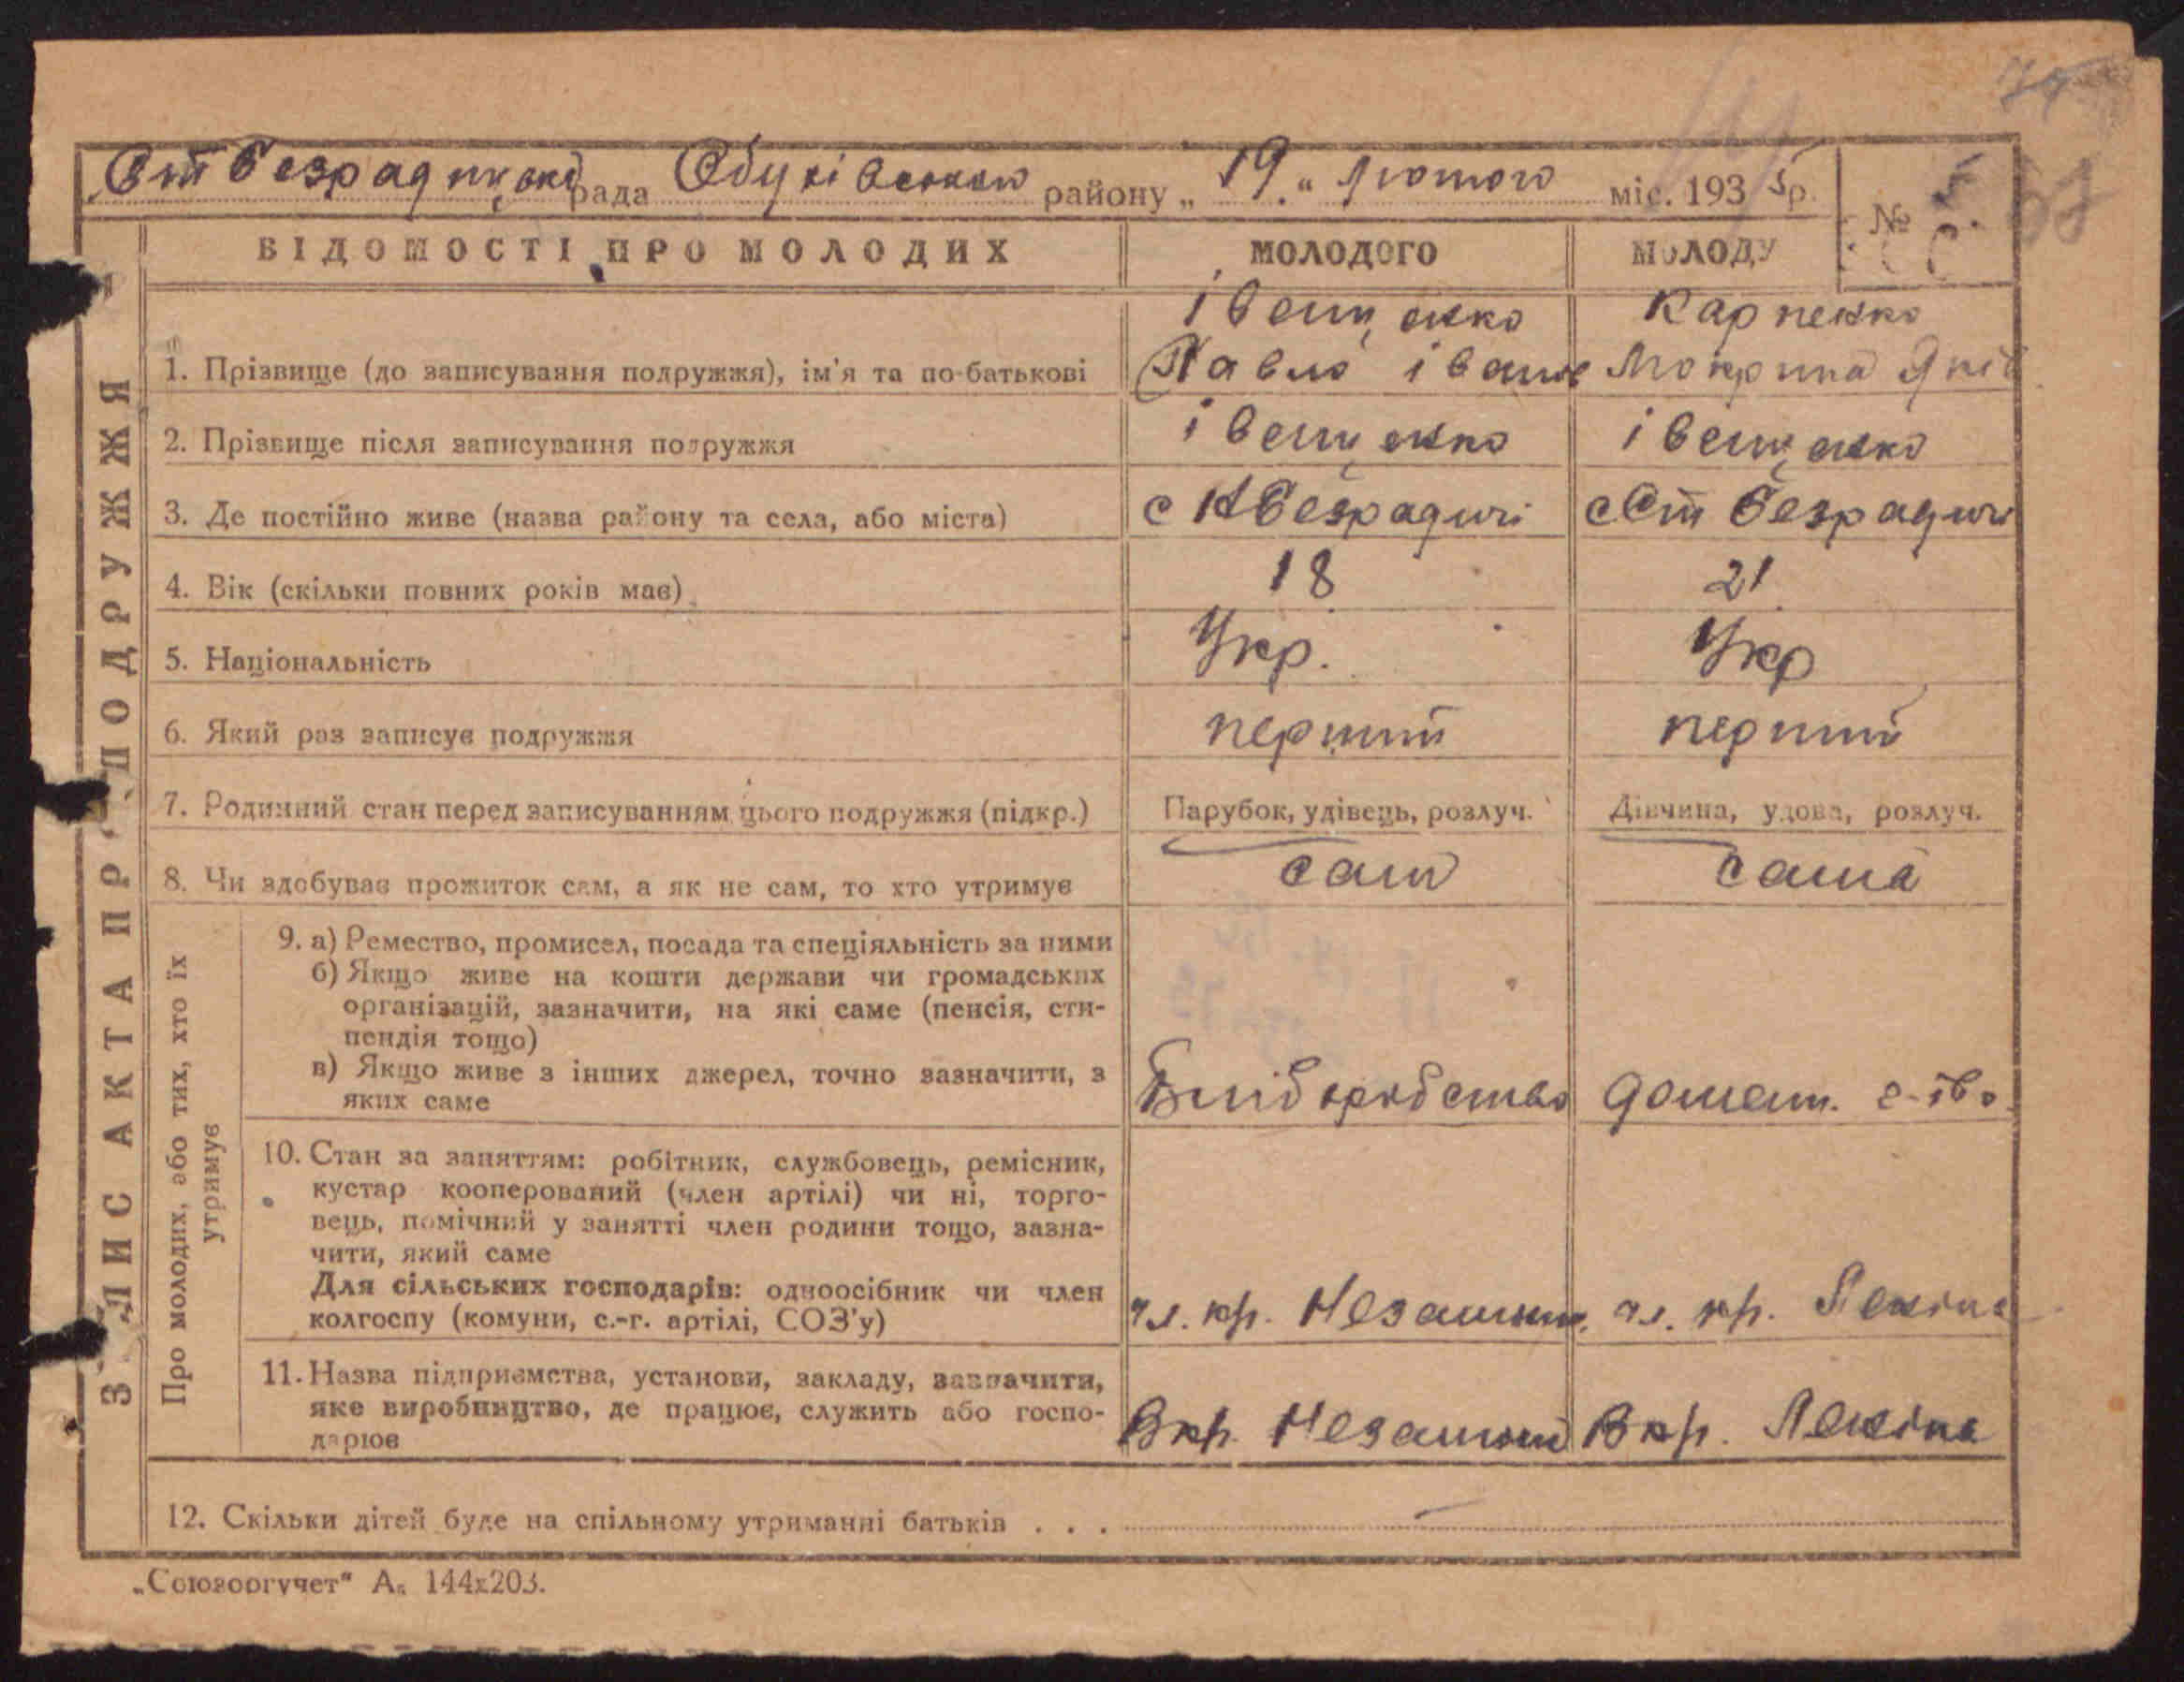 Ст Безрадицька рада Обухівського району „19“ лютого міс. 1935р.
№
ВІДОМОСТІ ПРО МОЛОДИХ МОЛОДОГО МОЛОДУ
1. Прізвище (до записування подружжя), ім'я та по-батькові Іващенко Карпенко
Павло Іванов Мокрина Яків
2. Прізвище після записування подружжя Іващенко Іващенко
3. Де постійно живе (назва району та села, або міста) с Н Безрадичі с Ст Безрадичі
4. Вік (скільки повних років має) 18 21
5. Національність Укр. Укр
6. Який раз записує подружжя перший перший
7. Родинний стан перед записуванням цього подружжя (підкр.) Парубок, удівець, розлуч. Дівчина, удова, розлуч.
8. Чи здобуває прожиток сам, а як не сам, то хто утримує сам сама
Про молодих, або тих, хто їх утримує
9. а) Ремество, промисел, посада та спеціяльність за ними
б) Якщо живе на кошти держави чи громадських
організацій, зазначити, на які саме (пенсія, сти-
пендія тощо)
в) Якщо живе з інших джерел, точно зазначити, з
яких саме домашн. г-тво
10. Стан за заняттям: робітник, службовець, ремісник,
кустар кооперований (член артілі) чи ні, торго-
вець, помічний у занятті член родини тощо, зазна-
чити, який саме
Для сільських господарів: одноосібник чи член
колгоспу (комуни, с.-г. артілі, СОЗ'у) чл. кр. Незаможн. чл. кр. Леніна
11. Назва підприємства, установи, закладу, зазначити,
яке виробництво, де працює, служить або госпо-
дарює В кр. Незаможн В кр. Леніна
12. Скільки дітей буде на спільному утриманні батьків . . . —
„Союзоргучет“ А₅ 144х203.
ЗАПИС АКТА ПРО ПОДРУЖЖЯ